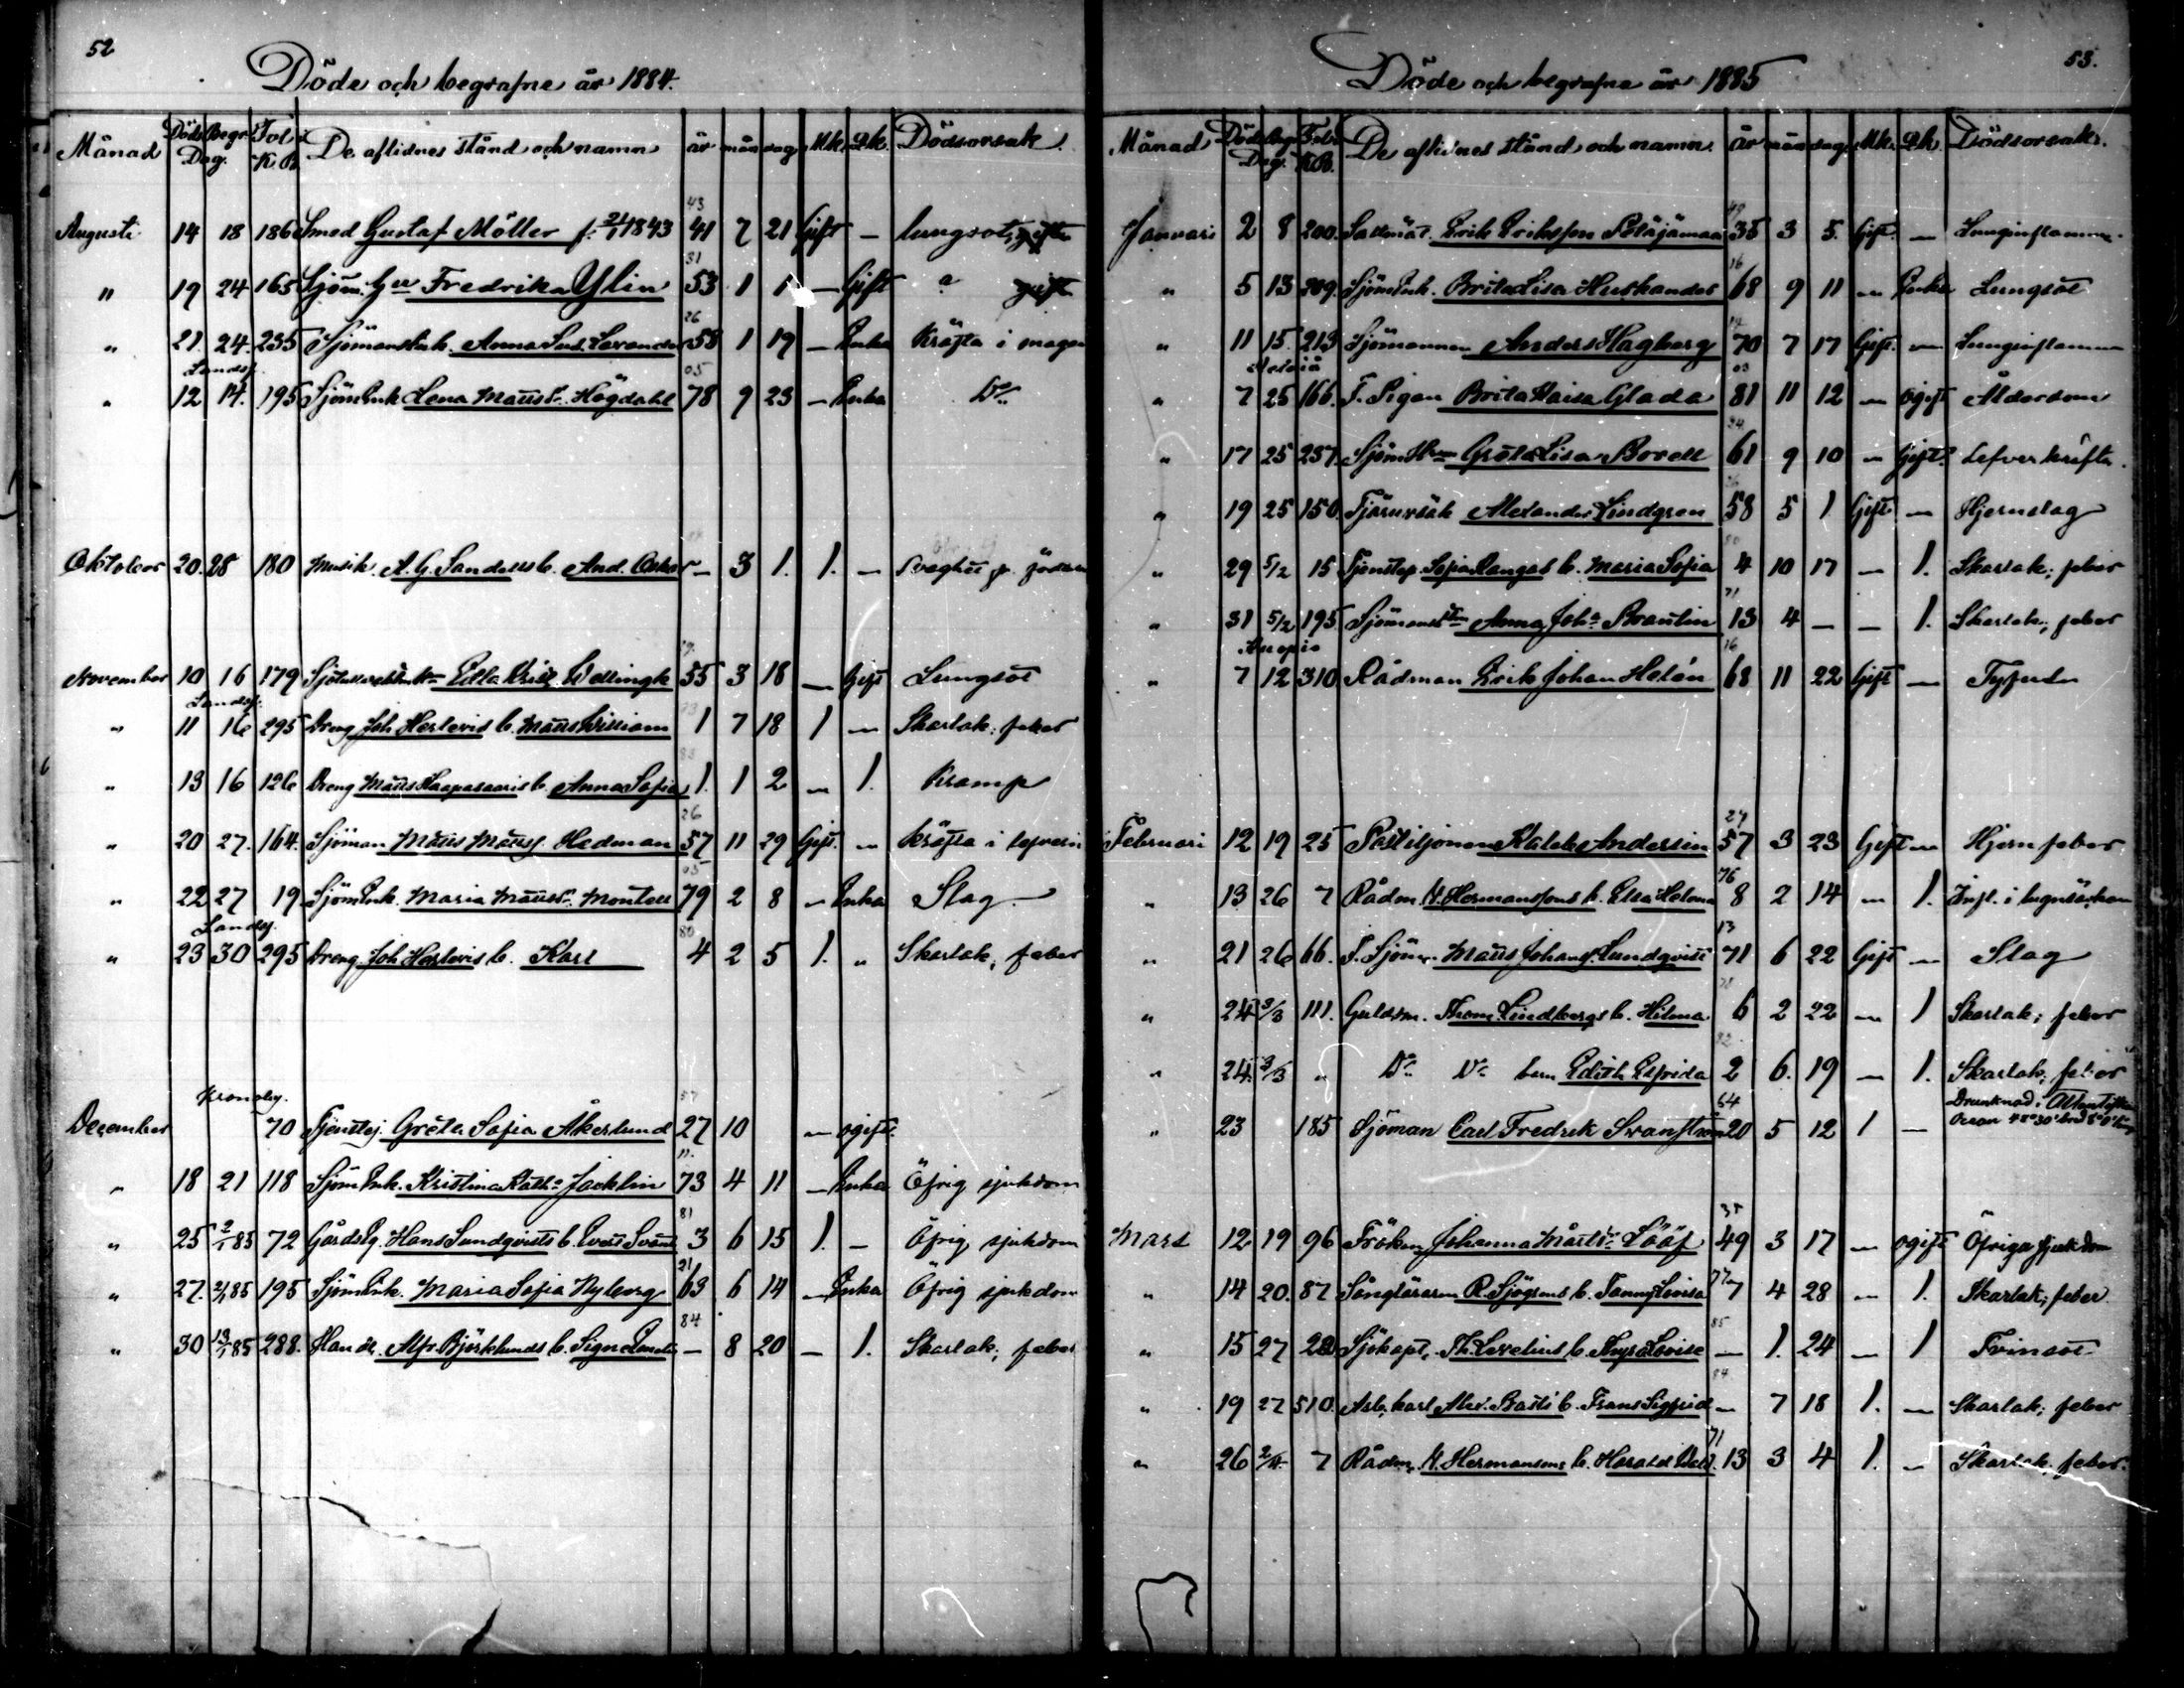 52
Döde och begrafne år 1884.
Månad Döds Begr. Fol. i De aflidnes stånd och namn år mån dag Mk. Qk. Dödsorsak.
Dag. K.B.
43
Augusti 14 18 186 Smed Gustaf Möller f. 24/1 1843 41 7 21 Gift — lungsot
31
" 19 24 165 Sjöm. Fredrika Ylin 53 1 1 — Gift
26
" 21. 24. 235 Sjömansenk. Anna Lovander 58 1 19 — Enka Kräfta i magen
Landsf. 05
" 12 14. 195 Sjöm Enk Lena Högdahl 78 9 23 — Enka Do
Oktober 20. 28 180 Musik. A. G. Sandells b. And. Oskar — 3 1. 1. — Svaghet
November 10 16 179 Edla Wellingk 55 3 18 — Gift Lungsot
Landsf.
" 11 16 295 Dreng Joh Herlevis b. Matts William 1 7 18 1 — Skarlak. feber
83
" 13 16 126 Dreng Matts Haapasaaris b. Anna Sofia 1. 1 2 — 1. Kramp
26
" 20 27. 164. Sjöman Matts Mattsf. Hedman 57 11 29 Gift. — Kräfta i lefvern
05
" 22 27 19 Sjöm Enk. Maria Montell 79 2 8 — Enka Slag
Landsf. 80
" 23 30 295 Dreng. Joh Herlevis b. Karl 4 2 5 1. " Skarlak. feber
Kronoby. 57
December 70 Tjensttej. Greta Sofia Åkerlund 27 10 — ogift.
11.
" 18 21 118 Sjöm Enk. Kristina Jacklin 73 4 11 — Enka Öfrig sjukdom
81
" 25 2/1 85 72 Gårdseg. Hans Sundqvists b. 3 6 15 1. — Öfrig sjukdom
21
" 27. 2/1 85 195 Sjöm Enk. Maria Sofia Nyberg 63 6 14 — Enka Öfrig sjukdom
84
" 30 13/1 85 288. Handl. Alfr. Björklunds b. Signe — 8 20 — 1. Skarlak. feber
53.
Döde och begrafne år 1885
Månad Döds Begr. Fol. De aflidnes stånd och namn. år mån dag Mk. Qk. Dödsorsak.
Dag. K.B.
49
Januari 2 8 200. Erik Eriksson 35 3 5. Gift. — Lunginflamm.
16
" 5 13 209. Sjöm Enk. Brita Lisa 68 9 11 — Enka Lungsot
14
" 11 15. 213 Sjömannen Anders Hagberg 70 7 17 Gift. — Lunginflamm
03
" 7 25 166. F. Pigan Brita Maisa Glada 81 11 12 — ogift Ålderdom
24
" 17 25 237. Greta Lisa Borell 61 9 10 — Gift. Lefverkräfta.
" 19 25 150. Alexander Lindgren 58 5 1 Gift — Hjernslag
80
" 29 5/2 15 Tjenstep. Sofia Rangas b. Maria Sofia 4 10 17 — 1. Skarlak. feber
71
" 31 5/2 195 Anna Joha 13 4 — — 1. Skarlak. feber
Kuopio 16
" 7 12 310 Rådman Erik Johan Helén 68 11 22 Gift —
27
Februari 12 19 25 Postiljonen Andersin 57 3 23 Gift — Hjernfeber
76
" 13 26 7 Rådm. N. Hermanssons b. Elsa Helena 8 2 14 — 1.
13
" 21 26 66. F. Sjöm. Matts Johansf. Lundqvist 71 6 22 Gift — Slag
78
" 24 3/3 111. Guldsm. Thom. Lindbergs b. Hilma 6 2 22 — 1 Skarlak. feber
82
" 24. 3/3 " Do Do barn Edith Elfrida 2 6. 19 — 1. Skarlak. feber
64 Drunknad i Atlantiska
" 23 185 Sjöman Carl Fredrik Svanström 20 5 12 1 — Ocean
35
Mars 12 19 96 Fröken Johanna Lööf 49 3 17 — ogift Öfriga sjukdom
77
" 14 20. 87 Sångläraren R. Sjögrens b. Fanny Lovisa 7 4 28 — 1. Skarlak. feber
85
" 15 27 22 Sjökapt. Th. b. Thyra Lovise — 1. 24 — 1 Tvinsot
84
" 19 27 510. Arb. karl Alex. b. Frans Sigfrid — 7 18 1. — Skarlak. feber
71
" 26 2/4 7 Rådm. N. Hermansons b. Harald 13 3 4 1. — Skarlak. feber.